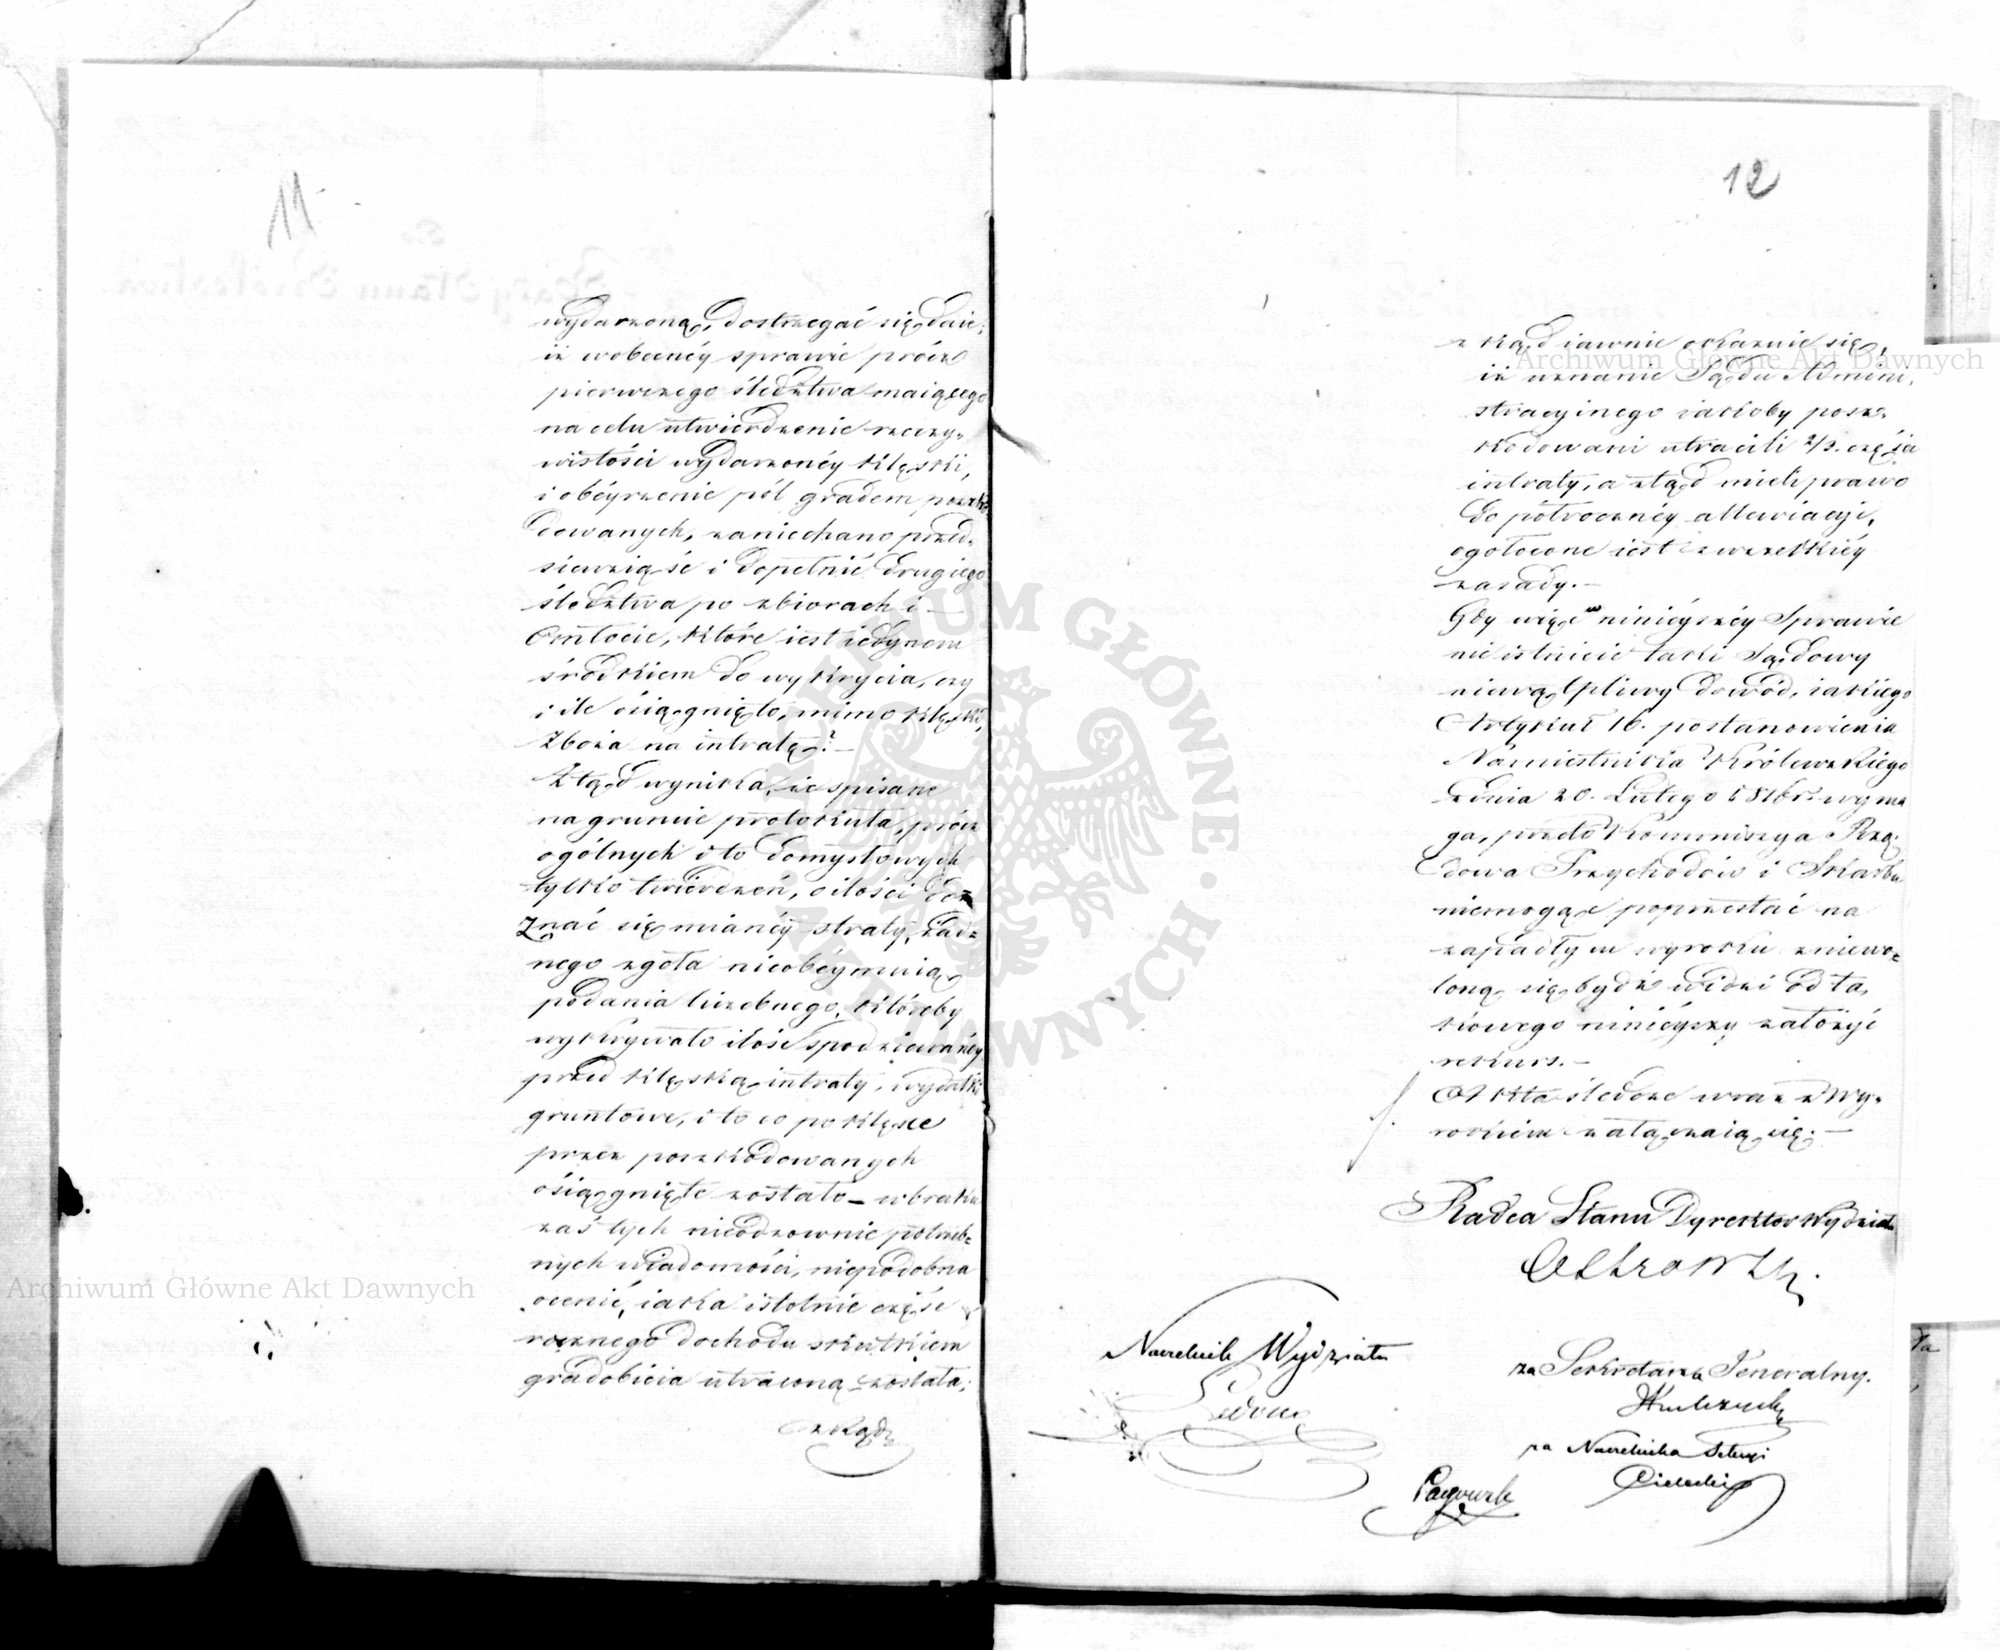 11
wydarzoną, dostrzegać się daie,
iż wobecnéy sprawie prócz
pierwszego śledztwa maiącego
na celu utwierdzenie rzeczy-
wistości wydarzonéy klęski,
i obéyrzenie pól gradem poszko
dowanych, zaniechano przed-
siewziąść i dopełnić drugiego
śledztwa po zbiorach i —
omłocie, które iest iedynem
środkiem do wykrycia, czy
i ile osiągnięto, mimo klęski,
zboża na intratę? —
Ztąd wynika, że spisane
na gruncie protokuła, prócz
ogólnych i to domysłowych
tylko twierdzeń, o ilości doz
znać się mianéy straty, żad-
nego zgoła nieobéymuią
podania liczebnego, któreby
wykrywało ilość spodziewanéy
przed klęską intraty, wydatki
gruntowe, i to co po klęsce
przez poszkodowanych
osiągnięte zostało — w braku
zaś tych nieodzownie potrzeb-
nych wiadomości, niepodobna
ocenić, iaka istotnie część
rocznego dochodu skutkiem
gradobicia utraconą została;
zkąd
12
zkąd iawnie okazuie się,
iż uznanie Sądu Admini-
stracyinego iakoby posz-
kodowani utracili 2/3. części
intraty, a ztąd mieli prawo
do półrocznéy allewiacyi,
ogołocone iest z wszelkiéy
zasady. —
Gdy więc w niniéyszéy Sprawie
nie istnieie taki Sądowy
niewątpliwy dowód, iakiego
Artykuł 16. postanowienia
Namiestnika Królewskiego
z dnia 20. Lutego 1816 r. wyma
ga, przeto Kommissya Rzą-
dowa Przychodów i Skarbu
niemogąc poprzestać na
zapadłym wyroku zniewo-
loną się bydź widzi od ta-
kowego niniéyszy założyć
rekurs. —
Akta śledcze wraz z Wy-
rokiem załączaią się. —
Radca Stanu Dyrektor Wydziału
Naczelnik Wydziału
za Sekretarza Generalny.
za Naczelnika Sekcyi
Archiwum Główne Akt Dawnych
Archiwum Główne Akt Dawnych
ARCHIWUM GŁÓWNE AKT DAWNYCH